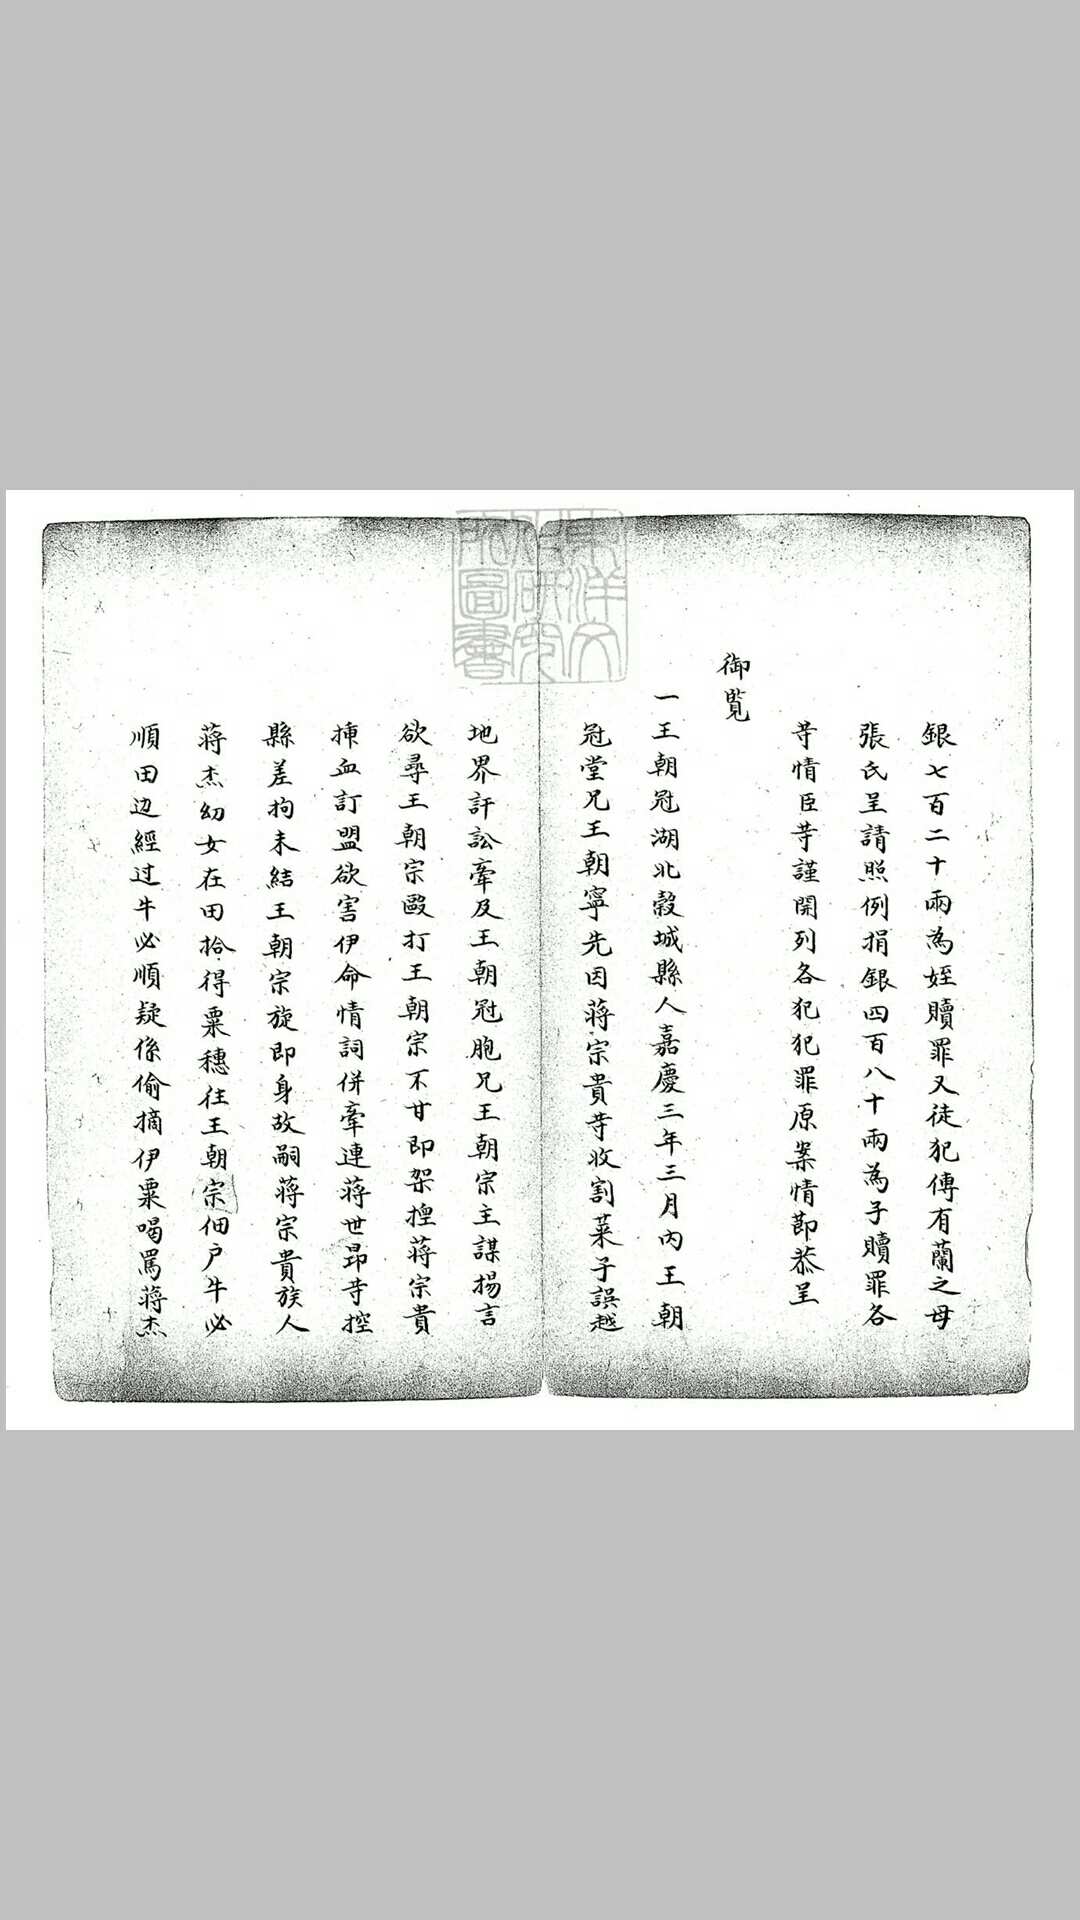 銀七百二十兩為姪贖罪又徒犯傅有蘭之母
張氏呈請照例捐銀四百八十兩為子贖罪各
䓁情臣䓁謹開列各犯犯罪原案情莭恭呈
御覧
一王朝冠湖北榖城縣人嘉慶三年三月內王朝
冠堂兄王朝寧先因蔣宗貴䓁收割菜子誤越
地界訐訟牽及王朝冠胞兄王朝宗主謀揚言
欲尋王朝宗毆打王朝宗不甘即架揑蔣宗貴
揷血訂盟欲害伊命情詞併牽連蔣世昂䓁控
縣差拘未結王朝宗旋即身故嗣蔣宗貴族人
蔣杰幼女在田拾得粟穗往王朝宗佃户牛必
順田边經过牛必順疑係偷摘伊粟喝罵蔣杰
東洋文
化研究
所圖書